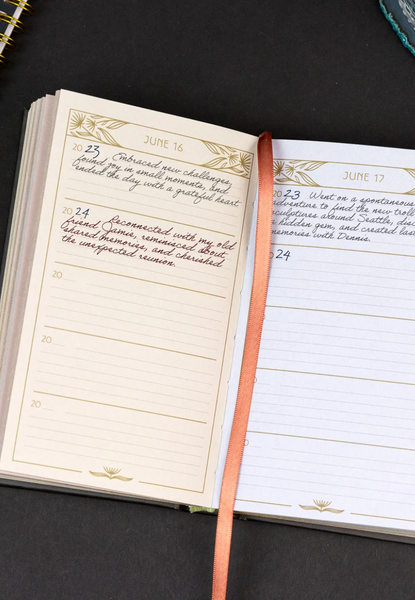 JUNE 16
2023 Embraced new challenges,
found joy in small moments, and
ended the day with a grateful heart
2024 Reconnected with my old
friend Jamie, reminisced about
shared memories, and cherished
the unexpected reunion.
20
20
20
JUNE 17
2023 Went on a spontaneous
adventure to find the new troll
sculptures around Seattle,
hidden gem, and created
memories with Dennis.
24